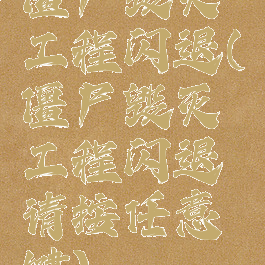 僵尸毁灭
工程闪退(
僵尸毁灭
工程闪退
请按任意
键)